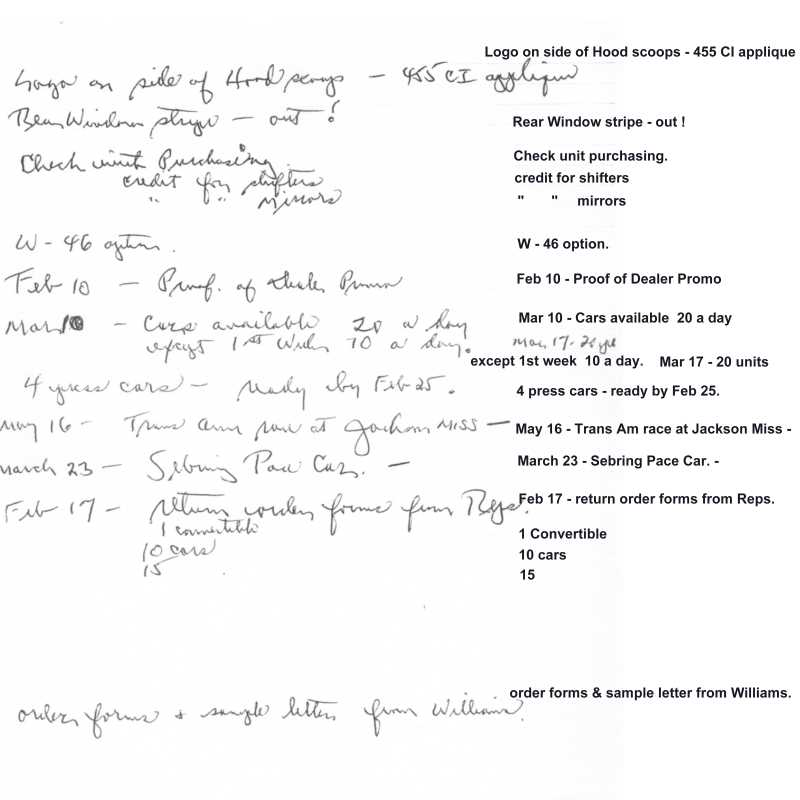 Logo on side of Hood scoops - 455 CI applique
Logo on side of Hood scoops — 455 CI applique
Rear Window stripe — out !
Rear Window stripe - out !
Check with Purchasing
Check unit purchasing.
credit for shifters
credit for shifters
" " mirrors
" " mirrors
W - 46 option.
W - 46 option.
Feb 10 — Proof. of Dealer Promo
Feb 10 - Proof of Dealer Promo
Mar 10 — Cars available 20 a day
Mar 10 - Cars available 20 a day
except 1st Week 10 a day.
Mar 17 - 20
except 1st week 10 a day. Mar 17 - 20 units
4 press cars — ready by Feb 25.
4 press cars - ready by Feb 25.
May 16 — Trans Am race at Jackson MISS —
May 16 - Trans Am race at Jackson Miss -
March 23 — Sebring Pace Car. —
March 23 - Sebring Pace Car. -
Feb 17 — return order forms from Reps.
Feb 17 - return order forms from Reps.
1 convertible
1 Convertible
10 cars
10 cars
15
15
order forms & sample letter from Williams.
order forms + sample letter from Williams.